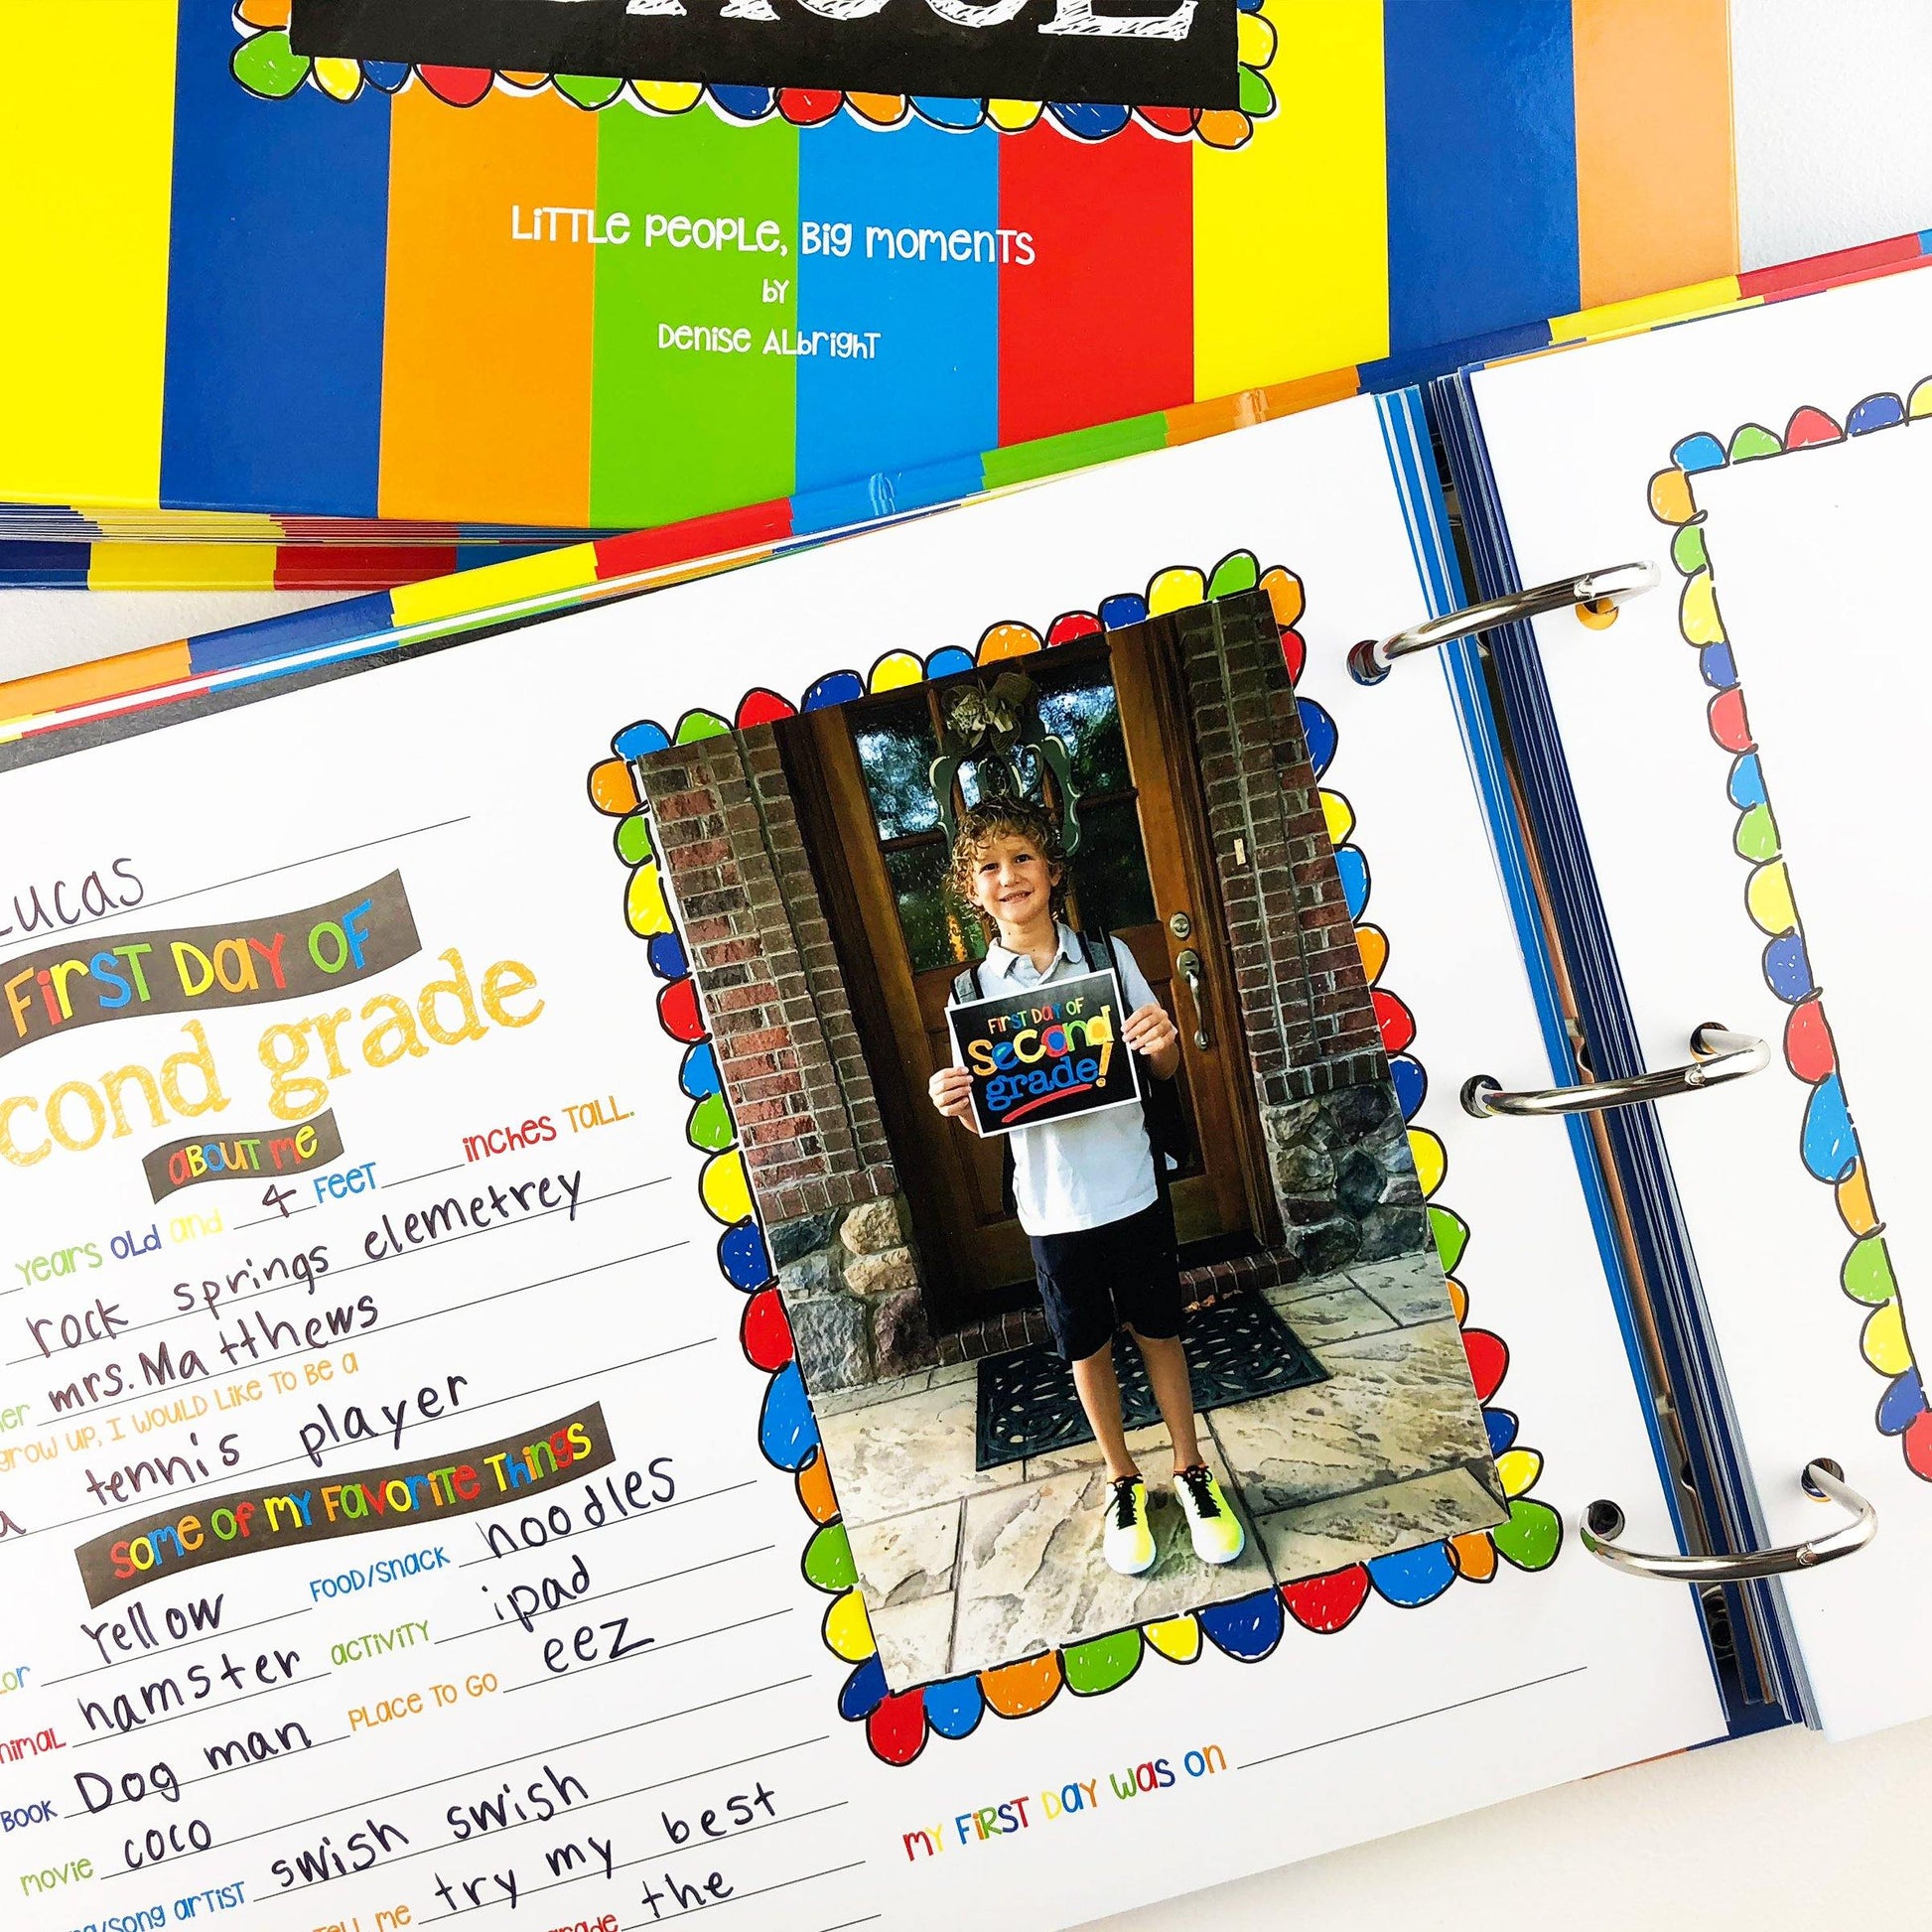 LITTLE PEOPLE, BIG MOMENTS
BY
DENISE ALBRIGHT
Lucas
FIRST DAY OF
cond grade
ABOUT ME
years OLD and 4 FEET inches TALL.
rock springs elemetrey
mrs. Matthews
grow up, I WOULD LIKE TO BE a
a tennis player
some of my Favorite Things
Yellow FOOD/snack noodles
hamster activity ipad
BOOK Dog man PLACE TO GO eez
movie coco
song artist swish swish
TELL me try my best
grade the
FIRST DAY OF
second
grade!
MY FIRST DAY was on